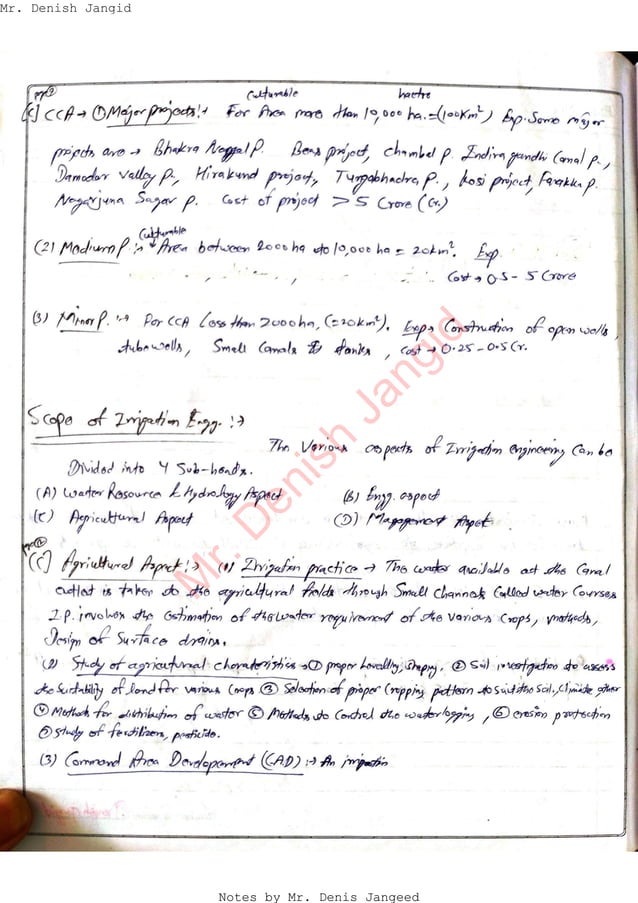 Mr. Denish Jangid
culturable hactre
[C] CCA → ① Major projects :→ For Area more than 10,000 ha. = (100 km²) Exp. Some major
projects are → Bhakra Nangal P. Beas project, chambal P. Indira gandhi Canal P.,
Damodar valley P., Hirakund project, Tungabhadra P., kosi project, Farakka P.
Nagarjuna Sagar P. Cost of project > 5 Crore (Cr.)
(2) Medium P. :→ Culturable Area between 2000 ha to 10,000 ha = 20km². Exp
Cost → 0.5 - 5 Crore
(3) Minor P. :→ For CCA Less than 2000ha, (=20km²). Exp→ Construction of open wells,
tube wells, Small Canals & tanks, Cost → 0.25 - 0.5 Cr.
Scope of Irrigation Engg. :→
The Various aspects of Irrigation engineering Can be
Divided into 4 Sub-heads.
(A) Water Resource & Hydrology Aspect (B) Engg. aspect
(C) Agricultural Aspect (D) Management Aspect.
[C] Agricultural Aspect :→ (1) Irrigation practice → The water available at the Canal
outlet is taken to the agricultural fields through Small channels Called water Courses
I.P. involves the Estimation of the water requirement of the various Crops, methods,
Design of Surface drains.
(2) Study of agricultural characteristics → ① proper Levelling, Shaping. ② Soil investigation to assess
the Suitability of land for various Crops ③ Selection of proper Cropping pattern to suit the soil, climate other
④ Methods for distribution of water ⑤ Methods to Control the waterlogging, ⑥ erosion protection
⑦ study of fertilizers, pesticide.
(3) Command Area Development (CAD) :→ An irrigation
Mr. Denish Jangid
Notes by Mr. Denis Jangeed